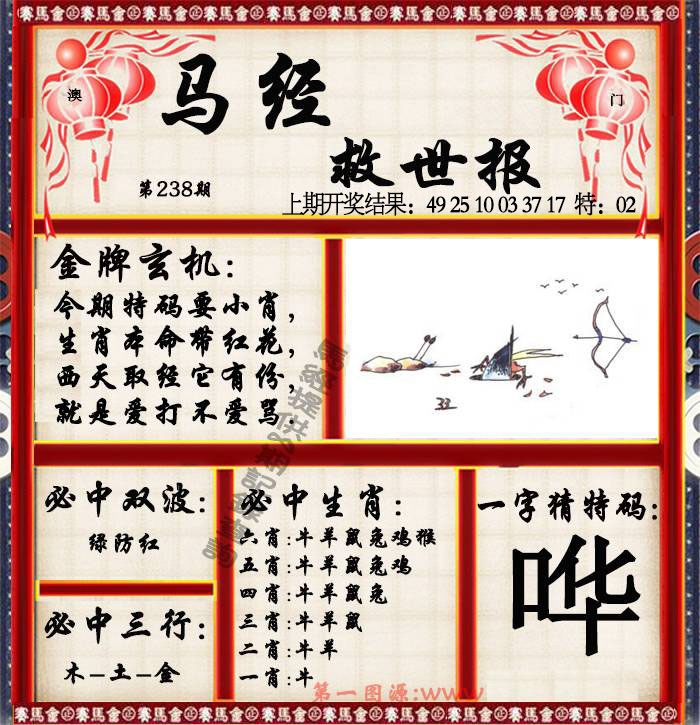 賽馬會金正賽馬會金正賽馬會金正賽馬會金正賽馬會金正賽馬會金正賽馬會
澳
门
马经
救世报
第238期
上期开奖结果：49 25 10 03 37 17 特：02
金牌玄机：
今期特码要小肖，
生肖本命带红花，
西天取经它有份，
就是爱打不爱骂.
33
必中双波：
绿防红
必中三行：
木–土–金
必中生肖：
六肖:牛羊鼠兔鸡猴
五肖:牛羊鼠兔鸡
四肖:牛羊鼠兔
三肖:牛羊鼠
二肖:牛羊
一肖:牛
一字猜特码：
哗
第一图源:www